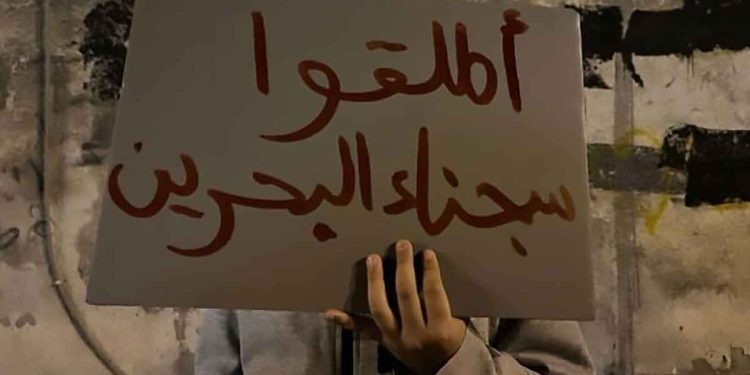 أطلقوا
سجناء البحرين